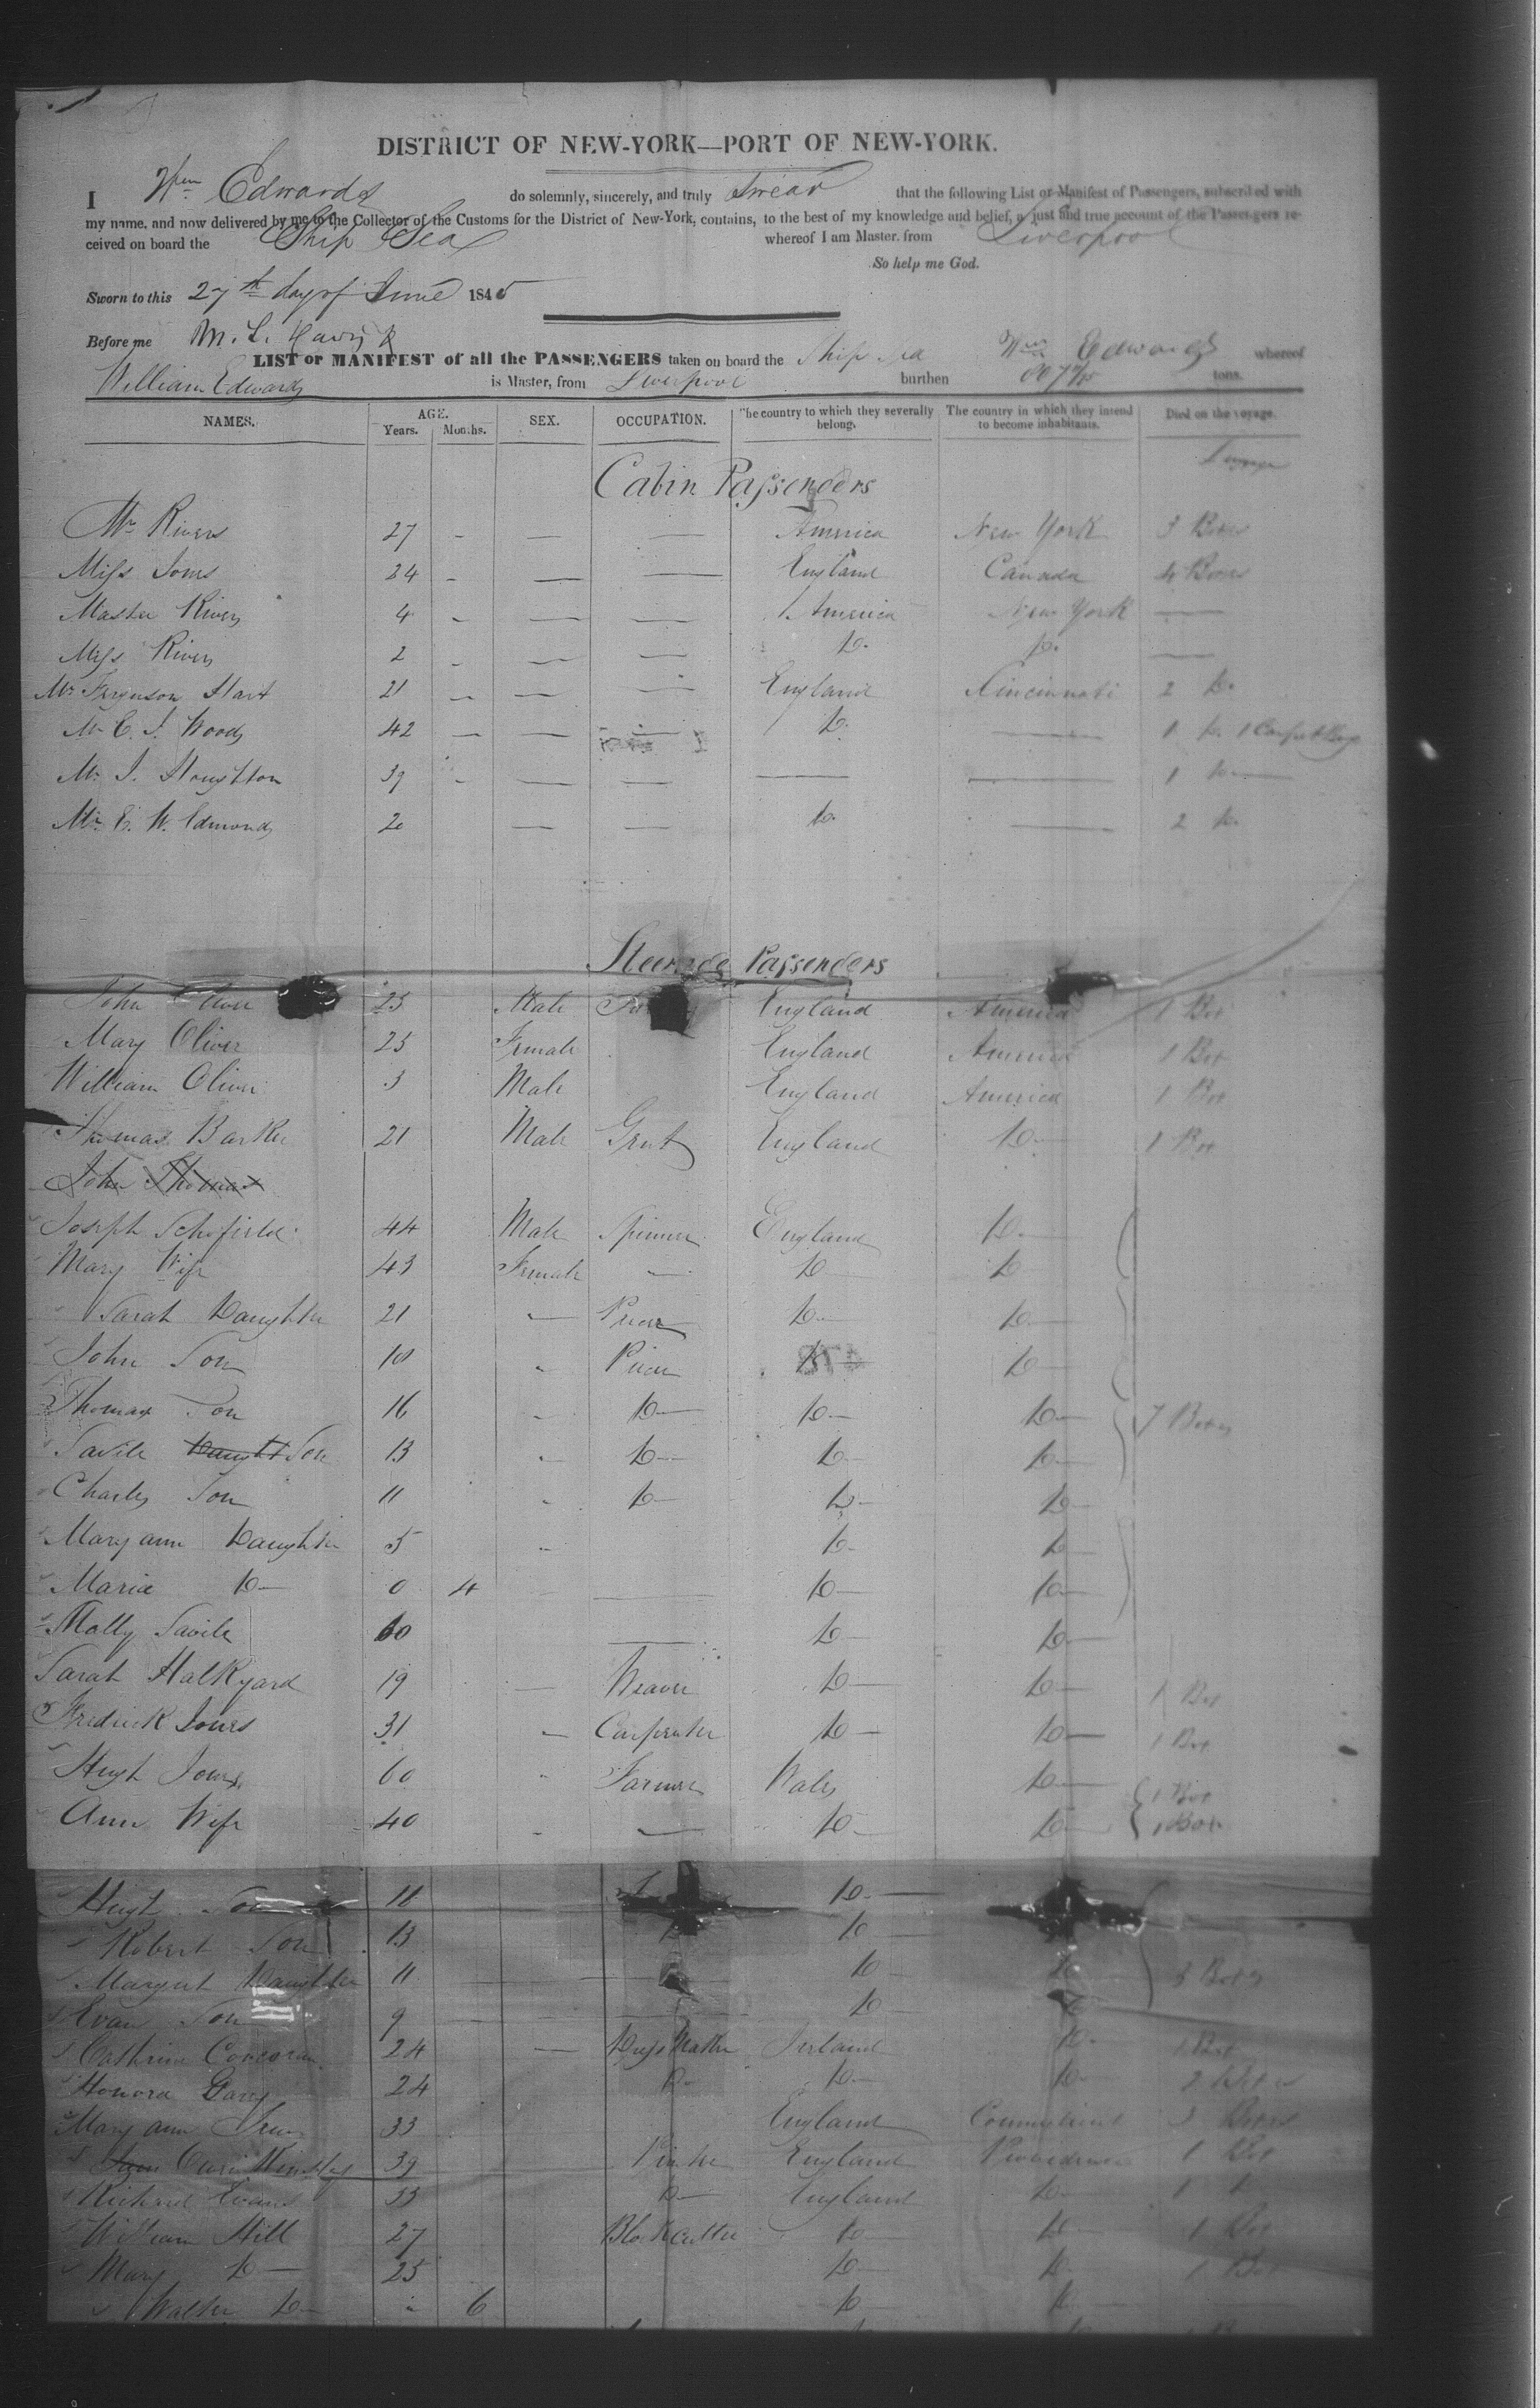 DISTRICT OF NEW-YORK—PORT OF NEW-YORK.
I Wm Edwards do solemnly, sincerely, and truly Swear that the following List or Manifest of Passengers, subscribed with
my name, and now delivered by me to the Collector of the Customs for the District of New-York, contains, to the best of my knowledge and belief, a just and true account of the Passengers re-
ceived on board the Ship Sea whereof I am Master, from Liverpool
So help me God.
Sworn to this 27th day of June 1845
Before me M. L.
LIST or MANIFEST of all the PASSENGERS taken on board the Ship Sea Wm Edwards whereof
William Edwards is Master, from Liverpool burthen 807 tons.
NAMES. AGE. Years. Months. SEX. OCCUPATION. The country to which they severally belong. The country in which they intend to become inhabitants. Died on the voyage.
Cabin Passengers
Mr Rivers 27 - — — America New York 3 Boxes
Miss Jones 24 - — — England Canada 4 Boxes
Master Rivers 4 - — — America New York —
Miss Rivers 2 - — — Do. Do. —
Mr Ferguson Hart 21 - — — England Cincinnati 2 Do.
Mr C. J. Woods 42 — — — Do. — 1 Do. 1 Carpet Bag
Mr J. Houghton 39 - — — — — 1 Do —
Mr E. W. Edmonds 20 — — Do. — 2 Do.
Steerage Passenders
John Oliver 25 Male England America 1 Box
Mary Oliver 25 Female England America 1 Box
William Oliver 3 Male England America 1 Box
Thomas Barker 21 Male Gent England Do — 1 Box
John Thomas
Joseph Schofield 44 Male Spinner England Do —
Mary Wife 43 Female — Do — Do
Sarah Daughter 21 — Do — Do —
John Son 18 - Do Do —
Thomas Son 16 - Do — Do — Do — 7 Boxes
Savile Daught Son 13 - Do — Do — Do —
Charles Son 11 - Do — Do — Do —
Mary ann Daughter 5 - Do — Do —
Maria Do — 0 4 — Do — Do —
Mally Savile 60 — Do — Do —
Sarah Halkyard 19 — Weaver Do — Do — 1 Box
Fredrick Jones 31 - Carpenter Do — Do — 1 Box
Hugh Jones 60 " Farmer Wales Do — 1 Box
Ann Wife 40 - — Do — Do — 1 Box
Hugh Son 18 Do —
Robert Son 13 Do
Margret Daughter 11 Do — 3 Boxes
Evan Son 9 Do —
Cathrine Corcoran 24 — Dress Maker Ireland Do — 1 Box
Honora 24 Do — Do — Do — 2 Boxes
Mary ann 33 England Connecticut 3 Boxes
39 England Providence 1 Box
Richard Evans 33 Do — England Do — 1 Do
William Hill 27 Block cutter Do Do — 1 Box
Mary Do — 25 Do — Do. 1 Box
Walter Do — " 6 Do Do